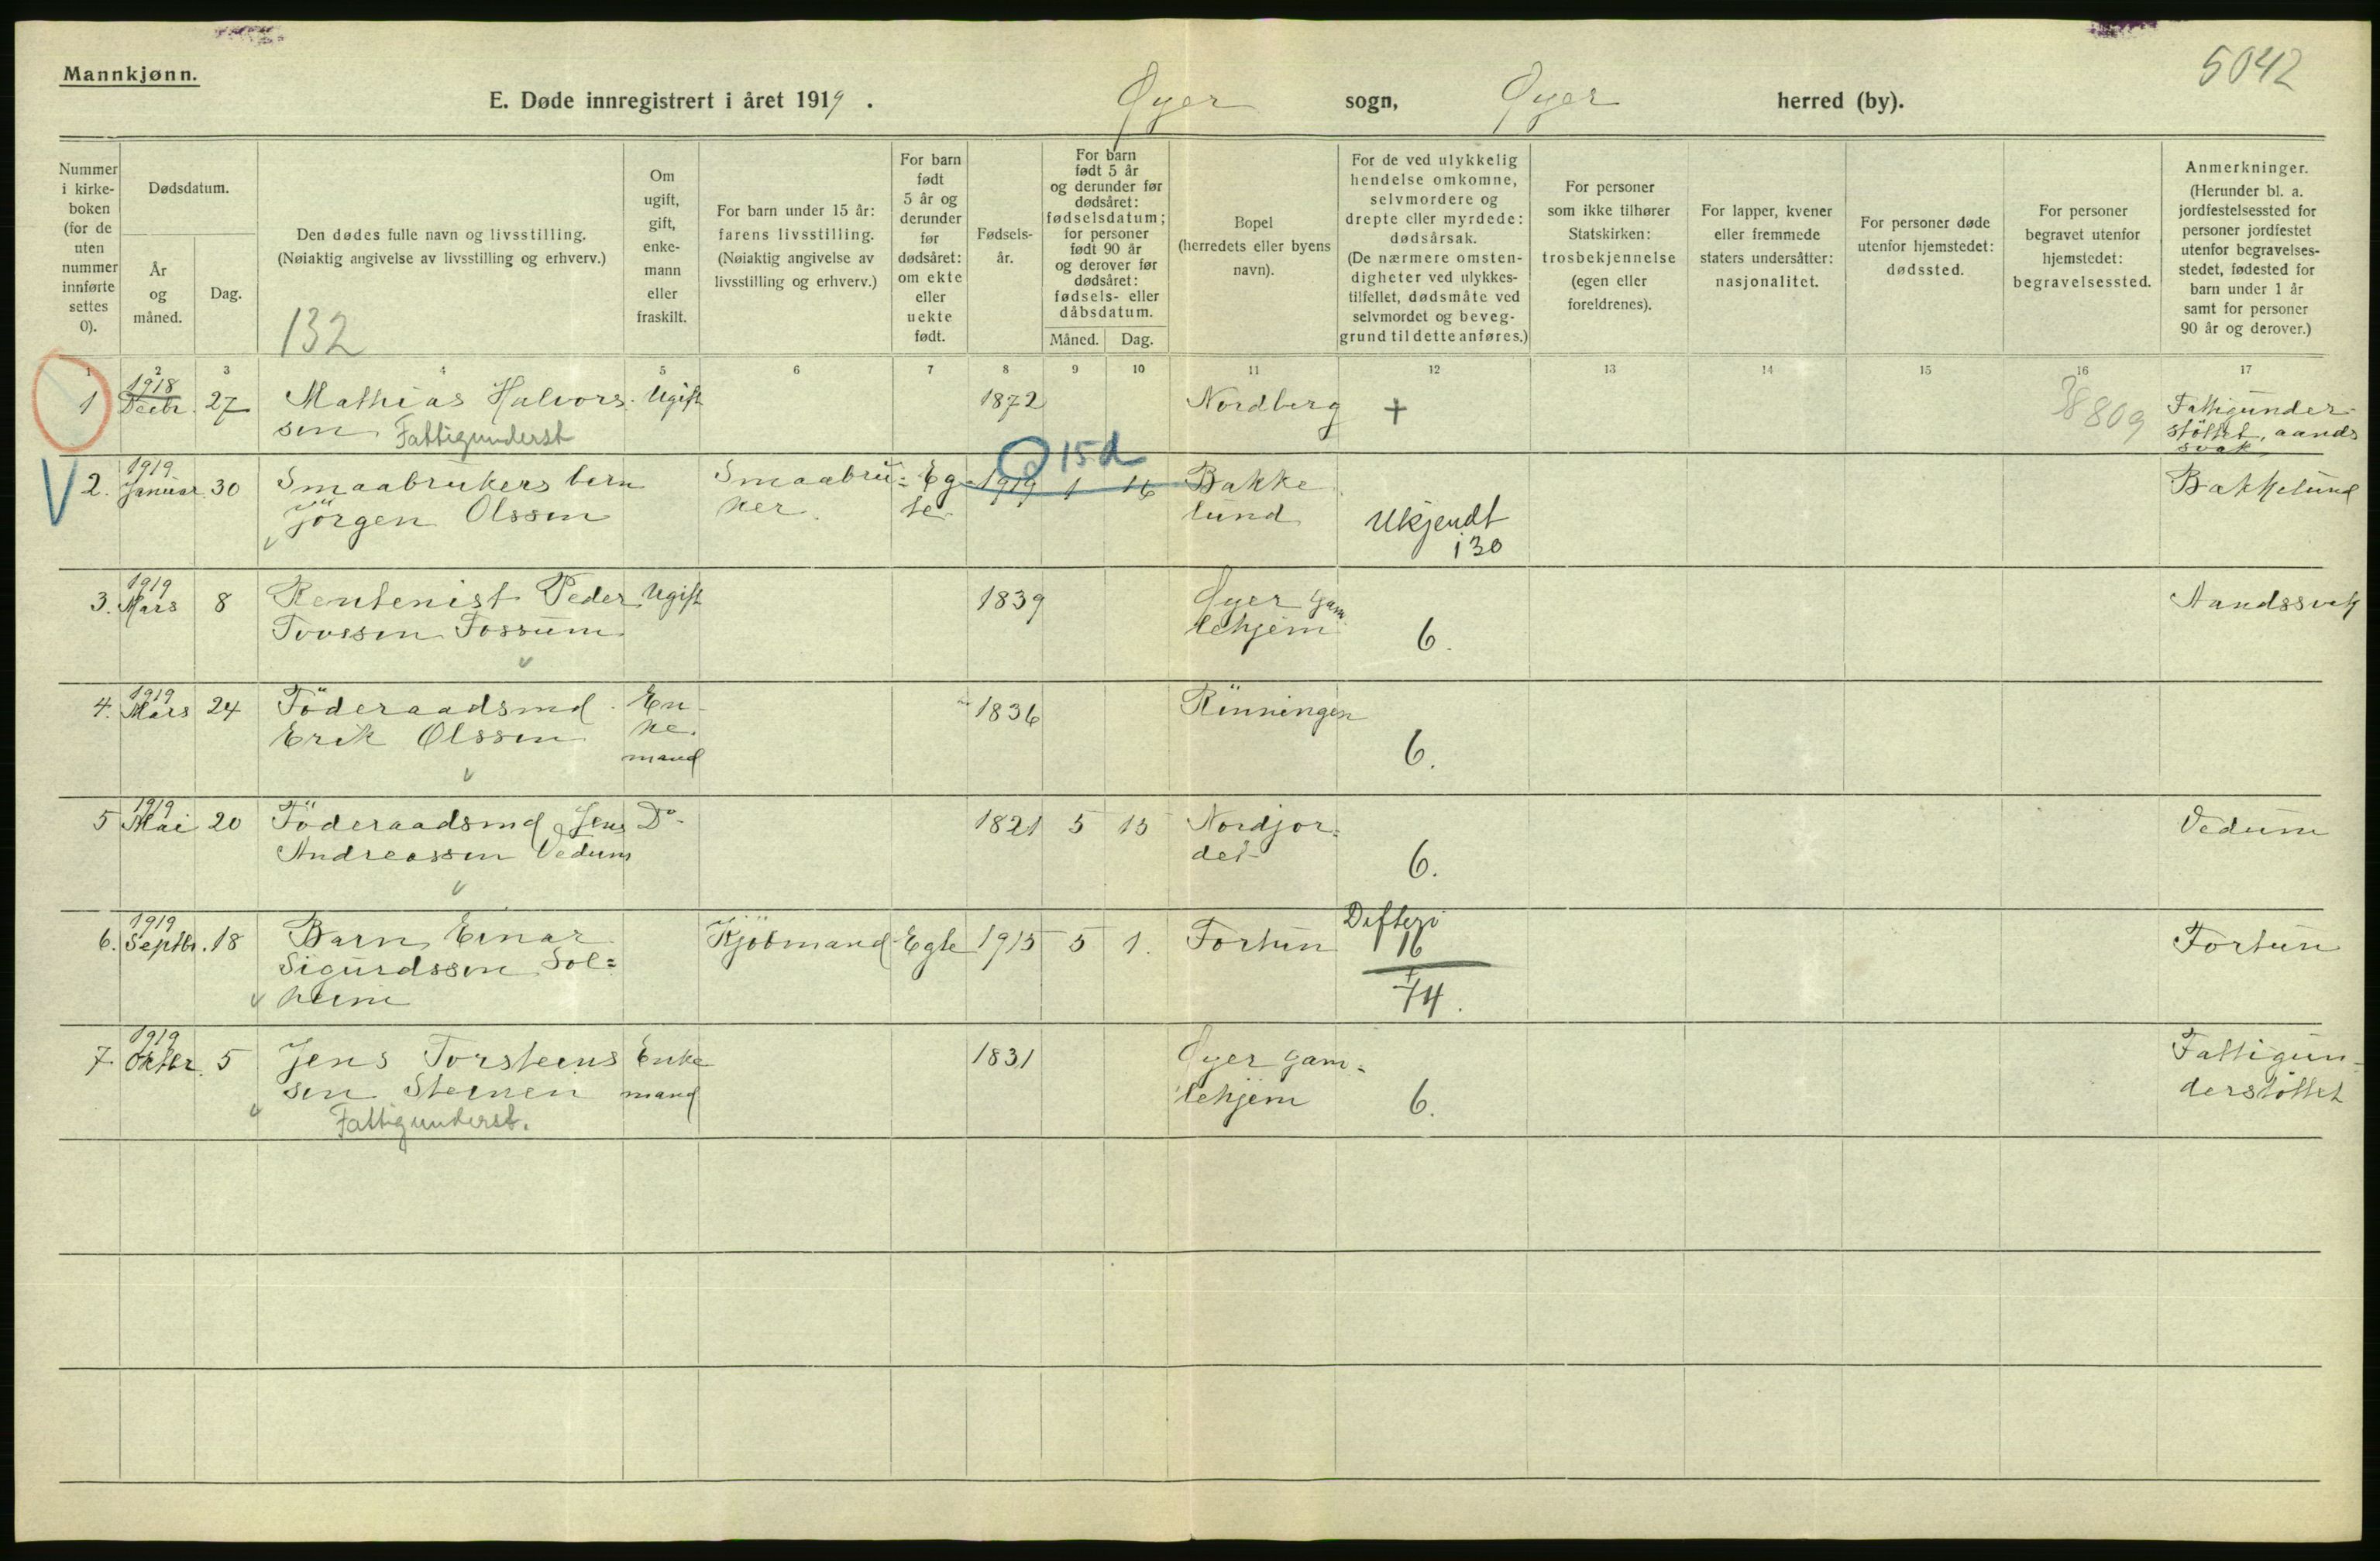 5042
Mannkjønn.
E. Døde innregistrert i året 1919. Øyer sogn, Øyer herred (by).
Nummer i kirke- boken (for de uten nummer innførte settes 0).
Dødsdatum.
År og måned.
Dag.
Den dødes fulle navn og livsstilling.
(Nøiaktig angivelse av livsstilling og erhverv.)
132
Om ugift, gift, enke- mann eller fraskilt.
For barn under 15 år: farens livsstilling. (Nøiaktig angivelse av livsstilling og erhverv.)
For barn født 5 år og derunder før dødsåret: om ekte eller uekte født.
Fødsels- år.
For barn født 5 år og derunder før dødsåret: fødselsdatum; for personer født 90 år og derover før dødsåret: fødsels- eller dåbsdatum.
Måned. Dag.
Bopel (herredets eller byens navn).
For de ved ulykkelig hendelse omkomne, selvmordere og drepte eller myrdede: dødsårsak. (De nærmere omsten- digheter ved ulykkes- tilfellet, dødsmåte ved selvmordet og beveg- grund til dette anføres.)
For personer som ikke tilhører Statskirken: trosbekjennelse (egen eller foreldrenes).
For lapper, kvener eller fremmede staters undersåtter: nasjonalitet.
For personer døde utenfor hjemstedet: dødssted.
For personer begravet utenfor hjemstedet: begravelsessted.
Anmerkninger. (Herunder bl. a. jordfestelsessted for personer jordfestet utenfor begravelses- stedet, fødested for barn under 1 år samt for personer 90 år og derover.)
1 2 3 4 5 6 7 8 9 10 11 12 13 14 15 16 17
1918
1 Decbr. 27 Mathias Halvors- Ugift 1872 Nordberg + Fattigunder-
sen Fattigunderst støttet, aands
svak
15d
1919
2. Januar 30 Smaabrukers barn Smaabru= Eg- 1919 1 16 Bakke Bakkelund
Jörgen Olssen ker te lund Ukjendt
130
1919
3. Mars 8 Rentenist Peder Ugift 1839 Øyer Gam Aandssvak
Tovssen Fossum lehjem 6.
1919
4. Mars 24 Föderaadsmd. En- 1836 Rünningen
Erik Olssen ke- 6.
mand
1919
5 Mai 20 Föderaadsmd Jens Do 1821 5 15 Nordjor= Vedum
Andreassen Vedum det 6.
1919
6. Septbr. 18 Barn Einar Kjöbmand Egte 1915 5 1. Fortun Difteri Fortun
Sigurdssen Sol= 16
heim 74.
1919
7. Oktbr. 5 Jens Torsteins Enke 1831 Øyer gam= Fattigun-
sen Steinen mand lehjem 6. derstöttet
Fattigunderst.